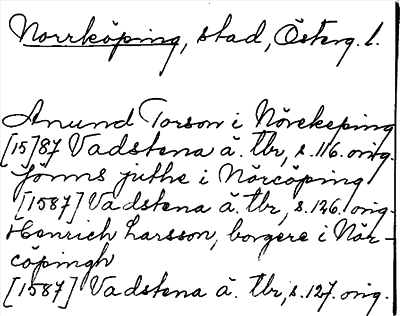 Norrköping, stad, Österg. l.
Anund Torson i Nörekeping
[15]87 Vadstena ä. tbr, s. 116. orig.
Jönns juthe i Nörcöping
[1587] Vadstena ä. tbr, s. 126. orig.
Henrich Larsson, borgere i Nör-
cöpingh
[1587] Vadstena ä. tbr, s. 127. orig.